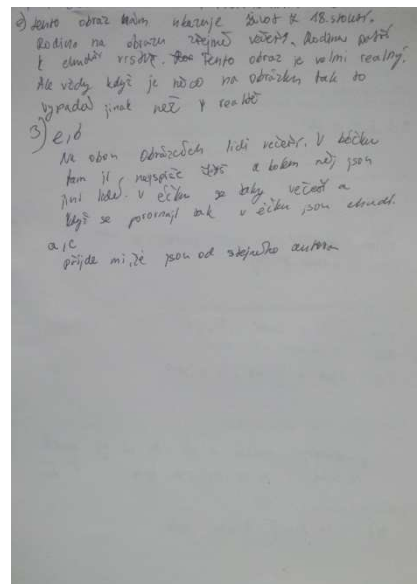 e) tento obraz nám ukazuje život z 18. stolet.
Rodina na obrazu zřejmě večeří. Rodina patří
k chudší vrstvě. Tento obraz je velmi realný.
Ale vždy když je něco na obrázku tak to
vypadá jinak než v realitě
3) e, b
Na obou obrázcích lidi večeří. V béčku
tam jí nejspíše a kolem něj jsou
jiní lidé. V éčku se taky večeří a
když se porovnají tak v éčku jsou chudší.
a, c
přijde mi, že jsou od stejného autora